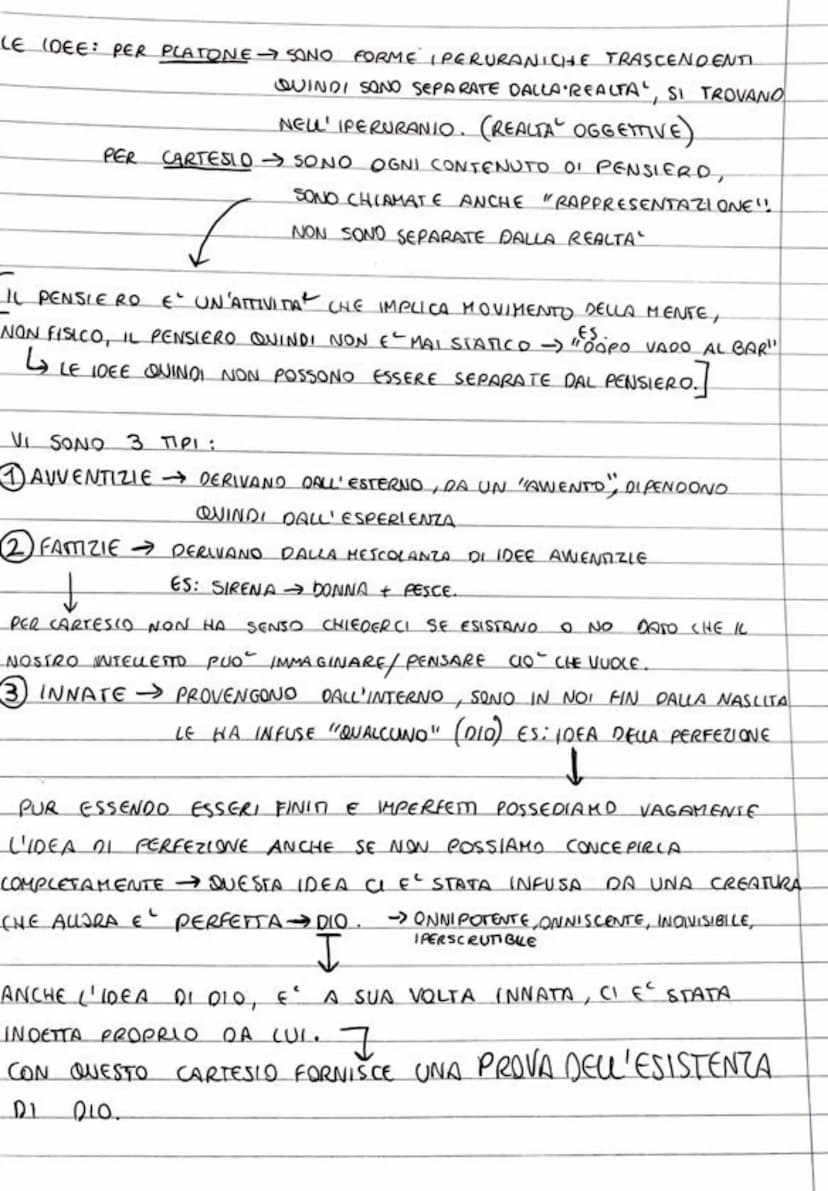 LE IDEE: PER PLATONE → SONO FORME IPERURANICHE TRASCENDENTI
QUINDI SONO SEPARATE DALLA REALTA', SI TROVANO
NELL'IPERURANIO. (REALTA' OGGETTIVE)
PER CARTESIO → SONO OGNI CONTENUTO DI PENSIERO,
SONO CHIAMATE ANCHE "RAPPRESENTAZIONE".
NON SONO SEPARATE DALLA REALTA'
[IL PENSIERO E' UN'ATTIVITA' CHE IMPLICA MOVIMENTO DELLA MENTE,
NON FISICO, IL PENSIERO QUINDI NON E' MAI STATICO → ES. "DOPO VADO AL BAR"
↳ LE IDEE QUINDI NON POSSONO ESSERE SEPARATE DAL PENSIERO.]
VI SONO 3 TIPI:
① AVVENTIZIE → DERIVANO DALL'ESTERNO, DA UN "AVVENTO", DIPENDONO
QUINDI DALL'ESPERIENZA
② FATTIZIE → DERIVANO DALLA MESCOLANZA DI IDEE AVVENTIZIE
ES: SIRENA → DONNA + PESCE.
PER CARTESIO NON HA SENSO CHIEDERCI SE ESISTANO O NO DATO CHE IL
NOSTRO INTELLETTO PUO' IMMAGINARE/PENSARE CIO' CHE VUOLE.
③ INNATE → PROVENGONO DALL'INTERNO, SONO IN NOI FIN DALLA NASCITA
LE HA INFUSE "QUALCUNO" (DIO) ES: IDEA DELLA PERFEZIONE
PUR ESSENDO ESSERI FINITI E IMPERFETTI POSSEDIAMO VAGAMENTE
L'IDEA DI PERFEZIONE ANCHE SE NON POSSIAMO CONCEPIRLA
COMPLETAMENTE → QUESTA IDEA CI E' STATA INFUSA DA UNA CREATURA
CHE ALLORA E' PERFETTA → DIO. → ONNIPOTENTE, ONNISCENTE, INDIVISIBILE,
IPERSCRUTIBILE
ANCHE L'IDEA DI DIO, E' A SUA VOLTA INNATA, CI E' STATA
INDETTA PROPRIO DA LUI.
CON QUESTO CARTESIO FORNISCE UNA PROVA DELL'ESISTENZA
DI DIO.